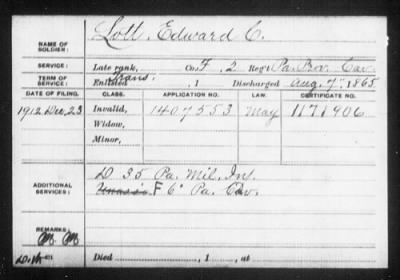 NAME OF SOLDIER: Lott, Edward C.
SERVICE: Late rank, Co. F, 2 Reg't Pa. Prov. Cav.
TERM OF SERVICE: Enlisted trans: , 1 Discharged Aug. 7", 1865
DATE OF FILING. CLASS. APPLICATION NO. LAW. CERTIFICATE NO.
1912 Dec, 23 Invalid, 1407553 May 1171906
Widow,
Minor,
ADDITIONAL SERVICES: D 35 Pa. Mil. Inf.
F 6" Pa. Cav.
REMARKS:
Died , 1 , at